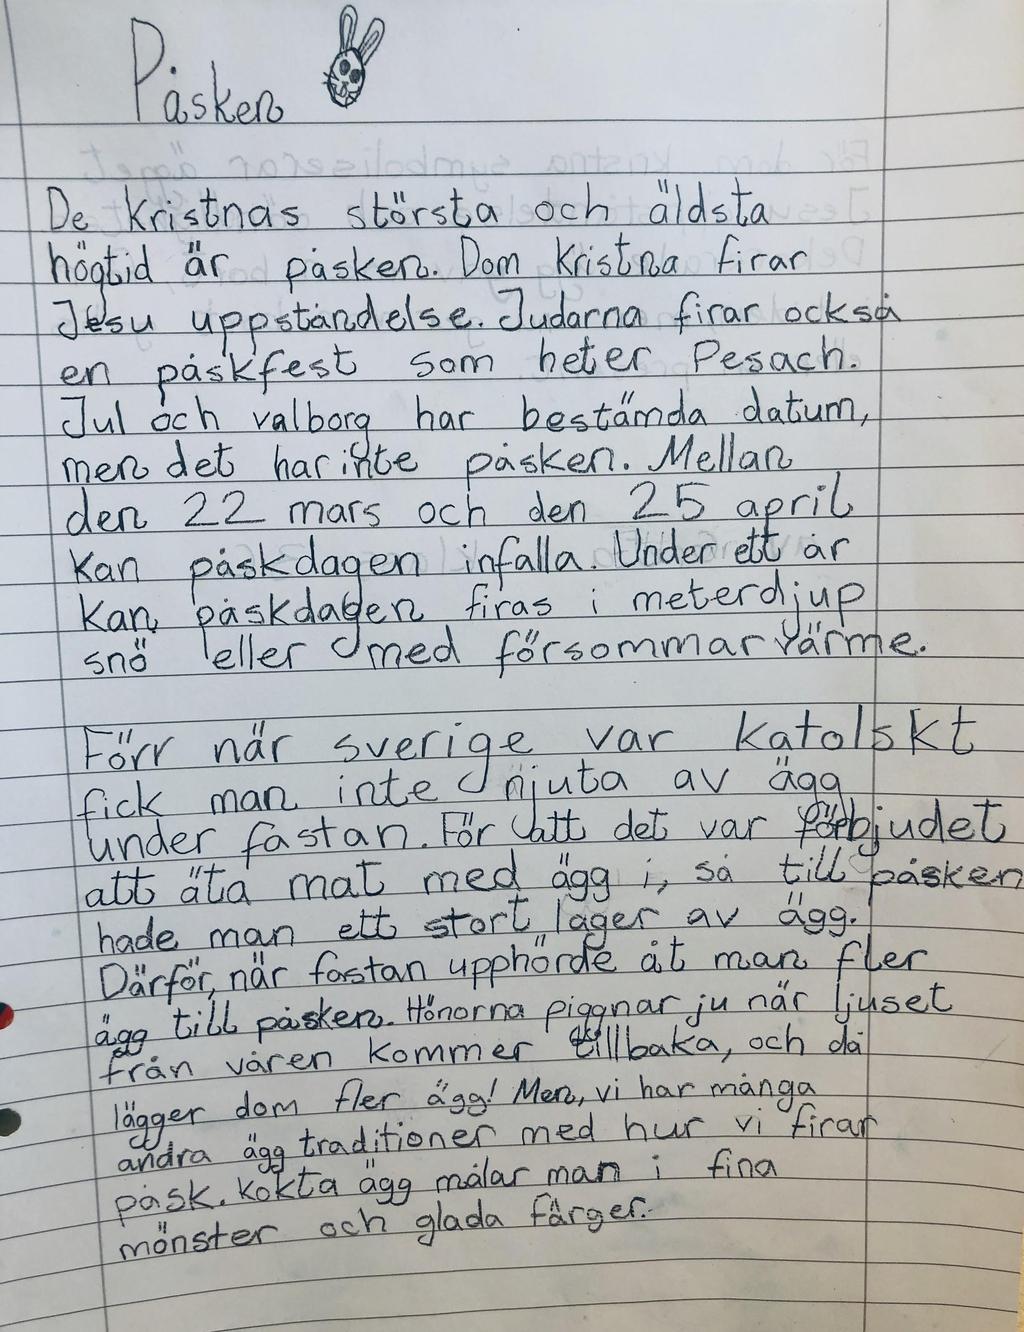 Påsken
De kristnas största och äldsta
högtid är påsken. Dom kristna firar
Jesu uppståndelse. Judarna firar också
en påskfest som heter Pesach.
Jul och valborg har bestämda datum,
men det har inte påsken. Mellan
den 22 mars och den 25 april
kan påskdagen infalla. Under ett år
kan påskdagen firas i meterdjup
snö eller med försommarvärme.
Förr när sverige var katolskt
fick man inte njuta av ägg
under fastan. För att det var förbjudet
att äta mat med ägg i, så till påsken
hade man ett stort lager av ägg.
Därför, när fastan upphörde åt man fler
ägg till påsken. Hönorna piggnar ju när ljuset
från våren kommer tillbaka, och då
lägger dom fler ägg! Men, vi har många
andra ägg traditioner med hur vi firar
påsk. kokta ägg målar man i fina
mönster och glada färger.